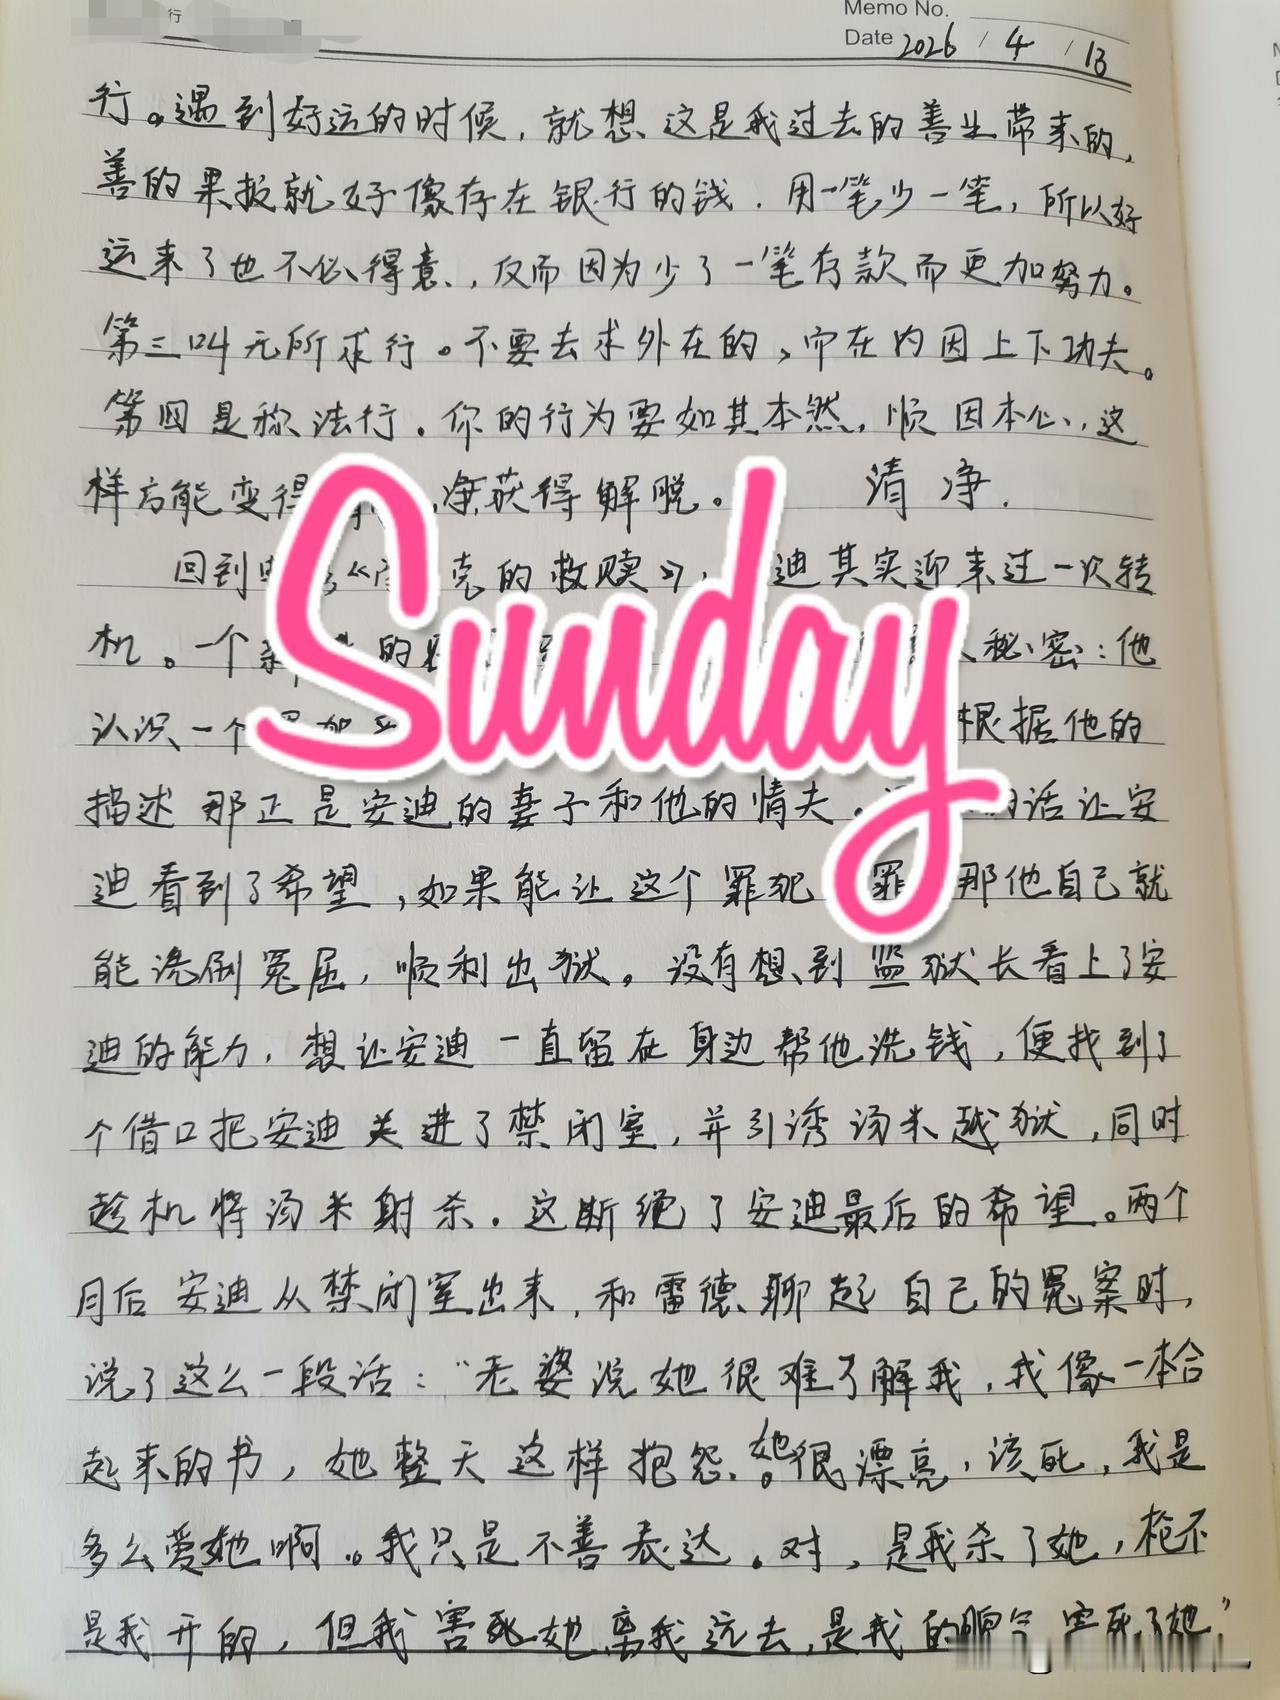 行
Memo No.
Date 2026 / 4 / 13
行。遇到好运的时候,就想这是我过去的善业带来的,
善的果报就好像存在银行的钱.用一笔少一笔,所以好
运来了也不必得意,反而因为少了一笔存款而更加努力。
第三叫无所求行。不要去求外在的,而在内因上下功夫。
第四是称法行。你的行为要如其本然,顺因本心,这
样方能变得 净获得解脱。 清净.
回到 克的救赎》, 迪其实迎来过一次转
机。一个 的 秘密:他
认识一个 根据他的
描述那正是安迪的妻子和他的情夫. 的话让安
迪看到了希望,如果能让这个罪犯 罪 那他自己就
能洗刷冤屈,顺利出狱。没有想到监狱长看上了安
迪的能力,想让安迪一直留在身边帮他洗钱,便找到了
个借口把安迪关进了禁闭室,并引诱汤米越狱,同时
趁机将汤米射杀.这断绝了安迪最后的希望。两个
月后安迪从禁闭室出来,和雷德聊起自己的冤案时,
说了这么一段话:“老婆说她很难了解我,我像一本合
起来的书,她整天这样抱怨。她很漂亮,该死,我是
多么爱她啊。我只是不善表达。对,是我杀了她,枪不
是我开的,但我害死她离我远去,是我的脾气害死了她”
Sunday